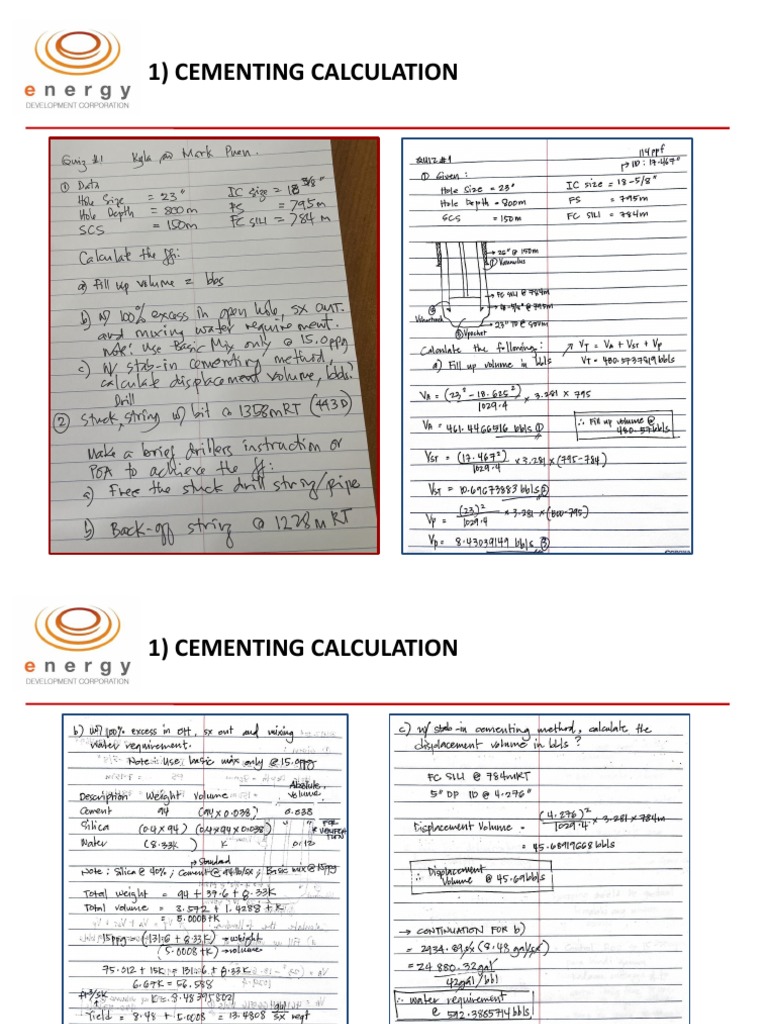 energy
DEVELOPMENT CORPORATION
1) CEMENTING CALCULATION
Quiz #1 Kyla Mark Puen.
① Data
Hole Size = 23"
Hole Depth = 800m
SCS = 150m
IC size = 18 5/8"
FS = 795m
FC SILI = 784m
Calculate the ff:
a) Fill up volume = bbs
b) W/ 100% excess in open hole, sx out.
and mixing water requirement.
Note: Use Basic Mix only @ 15.0ppg
c) W/ stab-in cementing method,
calculate displacement volume, bbls?
drill
② Stuck string w/ bit @ 1358mRT (443D)
Make a brief drillers instruction or
POA to achieve the ff:
a) Free the stuck drill string/pipe
b) Back-off string @ 1228mRT
QUIZ #1
114ppf
ID: 17.467"
① Given:
Hole Size = 23"
Hole Depth = 800m
SCS = 150m
IC size = 18-5/8"
FS = 795m
FC SILI = 784m
26" @ 150m
① Vannulus
FC SILI @ 784m
18-5/8" @ 795m
23" TD @ 800m
③ Vpocket
Calculate the following:
VT = VA + VST + Vp
VT = 480.5737819 bbls
a) Fill up volume in bbls
VA = (23² - 18.625²) / 1029.4 × 3.281 × 795
VA = 461.4466516 bbls ①
∴ Fill up volume @
480.57 bbls
VST = (17.467²) / 1029.4 × 3.281 × (795-784)
VST = 10.69673883 bbls ②
Vp = (23)² / 1029.4 × 3.281 × (800-795)
Vp = 8.43039149 bbls ③
energy
DEVELOPMENT CORPORATION
1) CEMENTING CALCULATION
b) w/ 100% excess in OH, sx out and mixing
water requirement.
Note: Use basic mix only @ 15.0ppg
Description Weight Volume Absolute Volume
Cement 94 (94 x 0.038) 0.038
Silica (0.4 x 94) (0.4 x 94 x 0.038) " "
FOR VERIFICATION
Water (8.33K) K 0.12
Standard
Note: Silica @ 40%; Cement @ 94lb/sx; Basic mix @ 15ppg
Total Weight = 94 + 37.6 + 8.33K
Total volume = 3.572 + 1.4288 + K
= 5.0008 + K
15ppg = (131.6 + 8.33K) → weight
(5.0008 + K) → volume
75.012 + 15K = 131.6 + 8.33K
6.67K = 56.588
K = 8.483958021
Yield = 8.48 + 5.0008 = 13.4808 gal/sx
c) w/ stab-in cementing method, calculate the
displacement volume in bbls?
FC SILI @ 784mRT
5" DP ID @ 4.276"
Displacement Volume = (4.276)² / 1029.4 × 3.281 × 784m
= 45.68919668 bbls
∴ Displacement
Volume @ 45.69 bbls
→ CONTINUATION FOR b)
= 2934.89 sx (8.48 gal/sx)
= 24 880.32 gal
42 gal/bbl
∴ Water requirement
@ 592.3885714 bbls